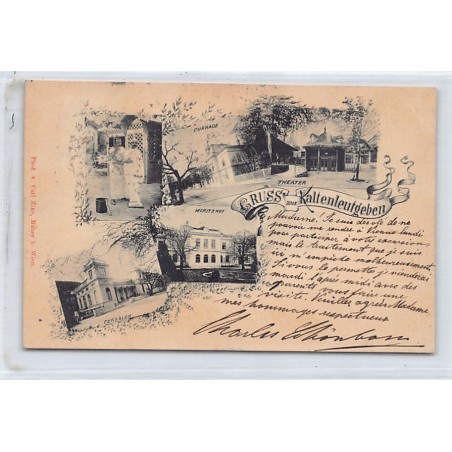 CURHAUS
THEATER
GRUSS aus Kaltenleutgeben
MORITZHOF
CURSALON
Madame. Je suis désolé de ne
pouvoir me rendre à Vienne lundi
pour participer à votre excursion
mais le traitement que je suis
ici m'empêche malheureusement.
Si vous le permettez je viendrai
mardi après midi avec des
parents vous faire une
visite. Veuillez agréer, Madame
mes hommages respectueux
Charles
Wien.